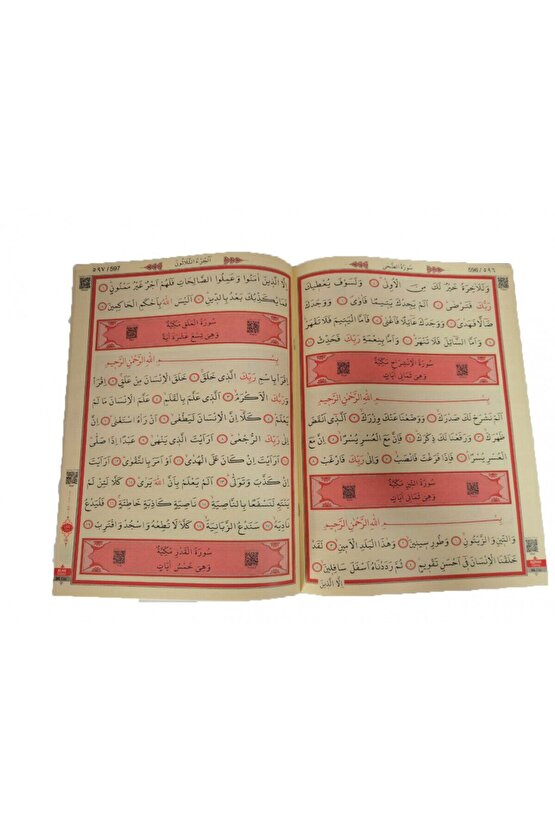 سُورَةُ الضُّحٰى
596 / ٥٩٦
وَلَلْاٰخِرَةُ خَيْرٌ لَكَ مِنَ الْاُولٰىۜ وَلَسَوْفَ يُعْطٖيكَ
رَبُّكَ فَتَرْضٰىۜ اَلَمْ يَجِدْكَ يَتٖيماً فَاٰوٰىۖ وَوَجَدَكَ
ضَٓالاًّ فَهَدٰىۖ وَوَجَدَكَ عَٓائِلاً فَاَغْنٰىۜ فَاَمَّا الْيَتٖيمَ فَلَا تَقْهَرْۜ
وَاَمَّا السَّٓائِلَ فَلَا تَنْهَرْۜ وَاَمَّا بِنِعْمَةِ رَبِّكَ فَحَدِّثْ
سُورَةُ الْاِنْشِرَاحِ مَكِّيَّةٌ
وَهِيَ ثَمَانِي اٰيَاتٍ
بِسْمِ اللّٰهِ الرَّحْمٰنِ الرَّحٖيمِ
اَلَمْ نَشْرَحْ لَكَ صَدْرَكَۙ وَوَضَعْنَا عَنْكَ وِزْرَكَۙ اَلَّـذٖٓي اَنْقَضَ
ظَهْرَكَۙ وَرَفَعْنَا لَكَ ذِكْرَكَۜ فَاِنَّ مَعَ الْعُسْرِ يُسْراًۙ اِنَّ مَعَ
الْعُسْرِ يُسْراًۜ فَاِذَا فَرَغْتَ فَانْصَبْۙ وَاِلٰى رَبِّكَ فَارْغَبْ
سُورَةُ التّٖينِ مَكِّيَّةٌ
وَهِيَ ثَمَانِي اٰيَاتٍ
بِسْمِ اللّٰهِ الرَّحْمٰنِ الرَّحٖيمِ
وَالتّٖينِ وَالزَّيْتُونِۙ وَطُورِ سٖينٖينَۙ وَهٰذَا الْبَلَدِ الْاَمٖينِۙ لَقَدْ
خَلَقْنَا الْاِنْسَانَ فٖٓي اَحْسَنِ تَقْوٖيمٍۘ ثُمَّ رَدَدْنَاهُ اَسْفَلَ سَافِلٖينَۙ
اِلَّا الَّذٖينَ
٥٩٧ / 597
اَلْجُزْءُ الثَّلَاثُونَ
اِلَّا الَّذٖينَ اٰمَنُوا وَعَمِلُوا الصَّالِحَاتِ فَلَهُمْ اَجْرٌ غَيْرُ مَمْنُونٍۜ
فَمَا يُكَذِّبُكَ بَعْدُ بِالدّٖينِۜ اَلَيْسَ اللّٰهُ بِاَحْكَمِ الْحَاكِمٖينَ
سُورَةُ الْعَلَقِ مَكِّيَّةٌ
وَهِيَ تِسْعَ عَشْرَةَ اٰيَةً
بِسْمِ اللّٰهِ الرَّحْمٰنِ الرَّحٖيمِ
اِقْرَأْ بِاسْمِ رَبِّكَ الَّذٖي خَلَقَۚ خَلَقَ الْاِنْسَانَ مِنْ عَلَقٍۚ اِقْرَأْ
وَرَبُّكَ الْاَكْرَمُۙ اَلَّذٖي عَلَّمَ بِالْقَلَمِۙ عَلَّمَ الْاِنْسَانَ مَا لَمْ
يَعْلَمْۜ كَلَّٓا اِنَّ الْاِنْسَانَ لَيَطْغٰىۙ اَنْ رَاٰهُ اسْتَغْنٰىۜ اِنَّ
اِلٰى رَبِّكَ الرُّجْعٰىۜ اَرَاَيْتَ الَّذٖي يَنْهٰىۙ عَبْداً اِذَا صَلّٰىۜ
اَرَاَيْتَ اِنْ كَانَ عَلَى الْهُدٰىۙ اَوْ اَمَرَ بِالتَّقْوٰىۜ اَرَاَيْتَ
اِنْ كَذَّبَ وَتَوَلّٰىۜ اَلَمْ يَعْلَمْ بِاَنَّ اللّٰهَ يَرٰىۜ كَلَّا لَئِنْ لَمْ
يَنْتَهِ لَنَسْفَعاً بِالنَّاصِيَةِۙ نَاصِيَةٍ كَاذِبَةٍ خَاطِئَةٍۚ فَلْيَدْعُ
نَادِيَهُۙ سَنَدْعُ الزَّبَانِيَةَۙ كَلَّاۜ لَا تُطِعْهُ وَاسْجُدْ وَاقْتَرِبْ
سُورَةُ الْقَدْرِ مَكِّيَّةٌ
وَهِيَ خَمْسُ اٰيَاتٍ